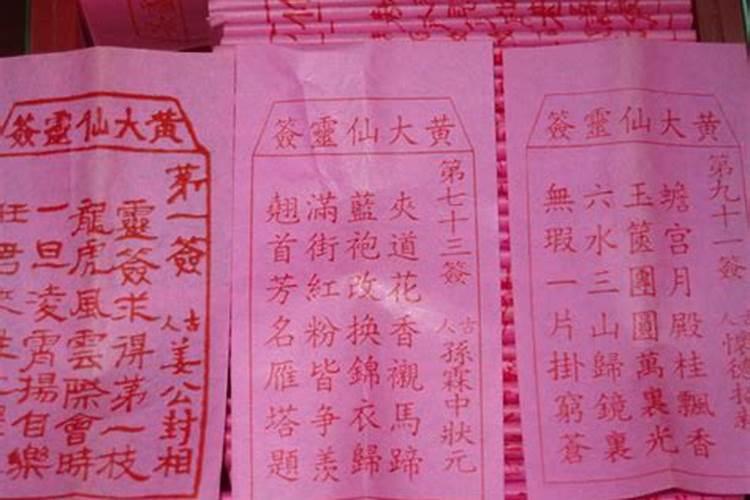 黃大仙靈簽
第一簽
古人 姜公封相
靈簽求得第一枝
龍虎風雲際會時
一旦凌霄揚自樂
黃大仙靈簽
第七十三簽
古人 孫霖中狀元
夾道花香襯馬蹄
藍袍改換錦衣歸
滿街紅粉皆爭羨
翹首芳名雁塔題
黃大仙靈簽
第九十一簽
蟾宮月殿桂飄香
玉箇團圓萬裏光
六水三山歸鏡裏
無瑕一片掛窮蒼